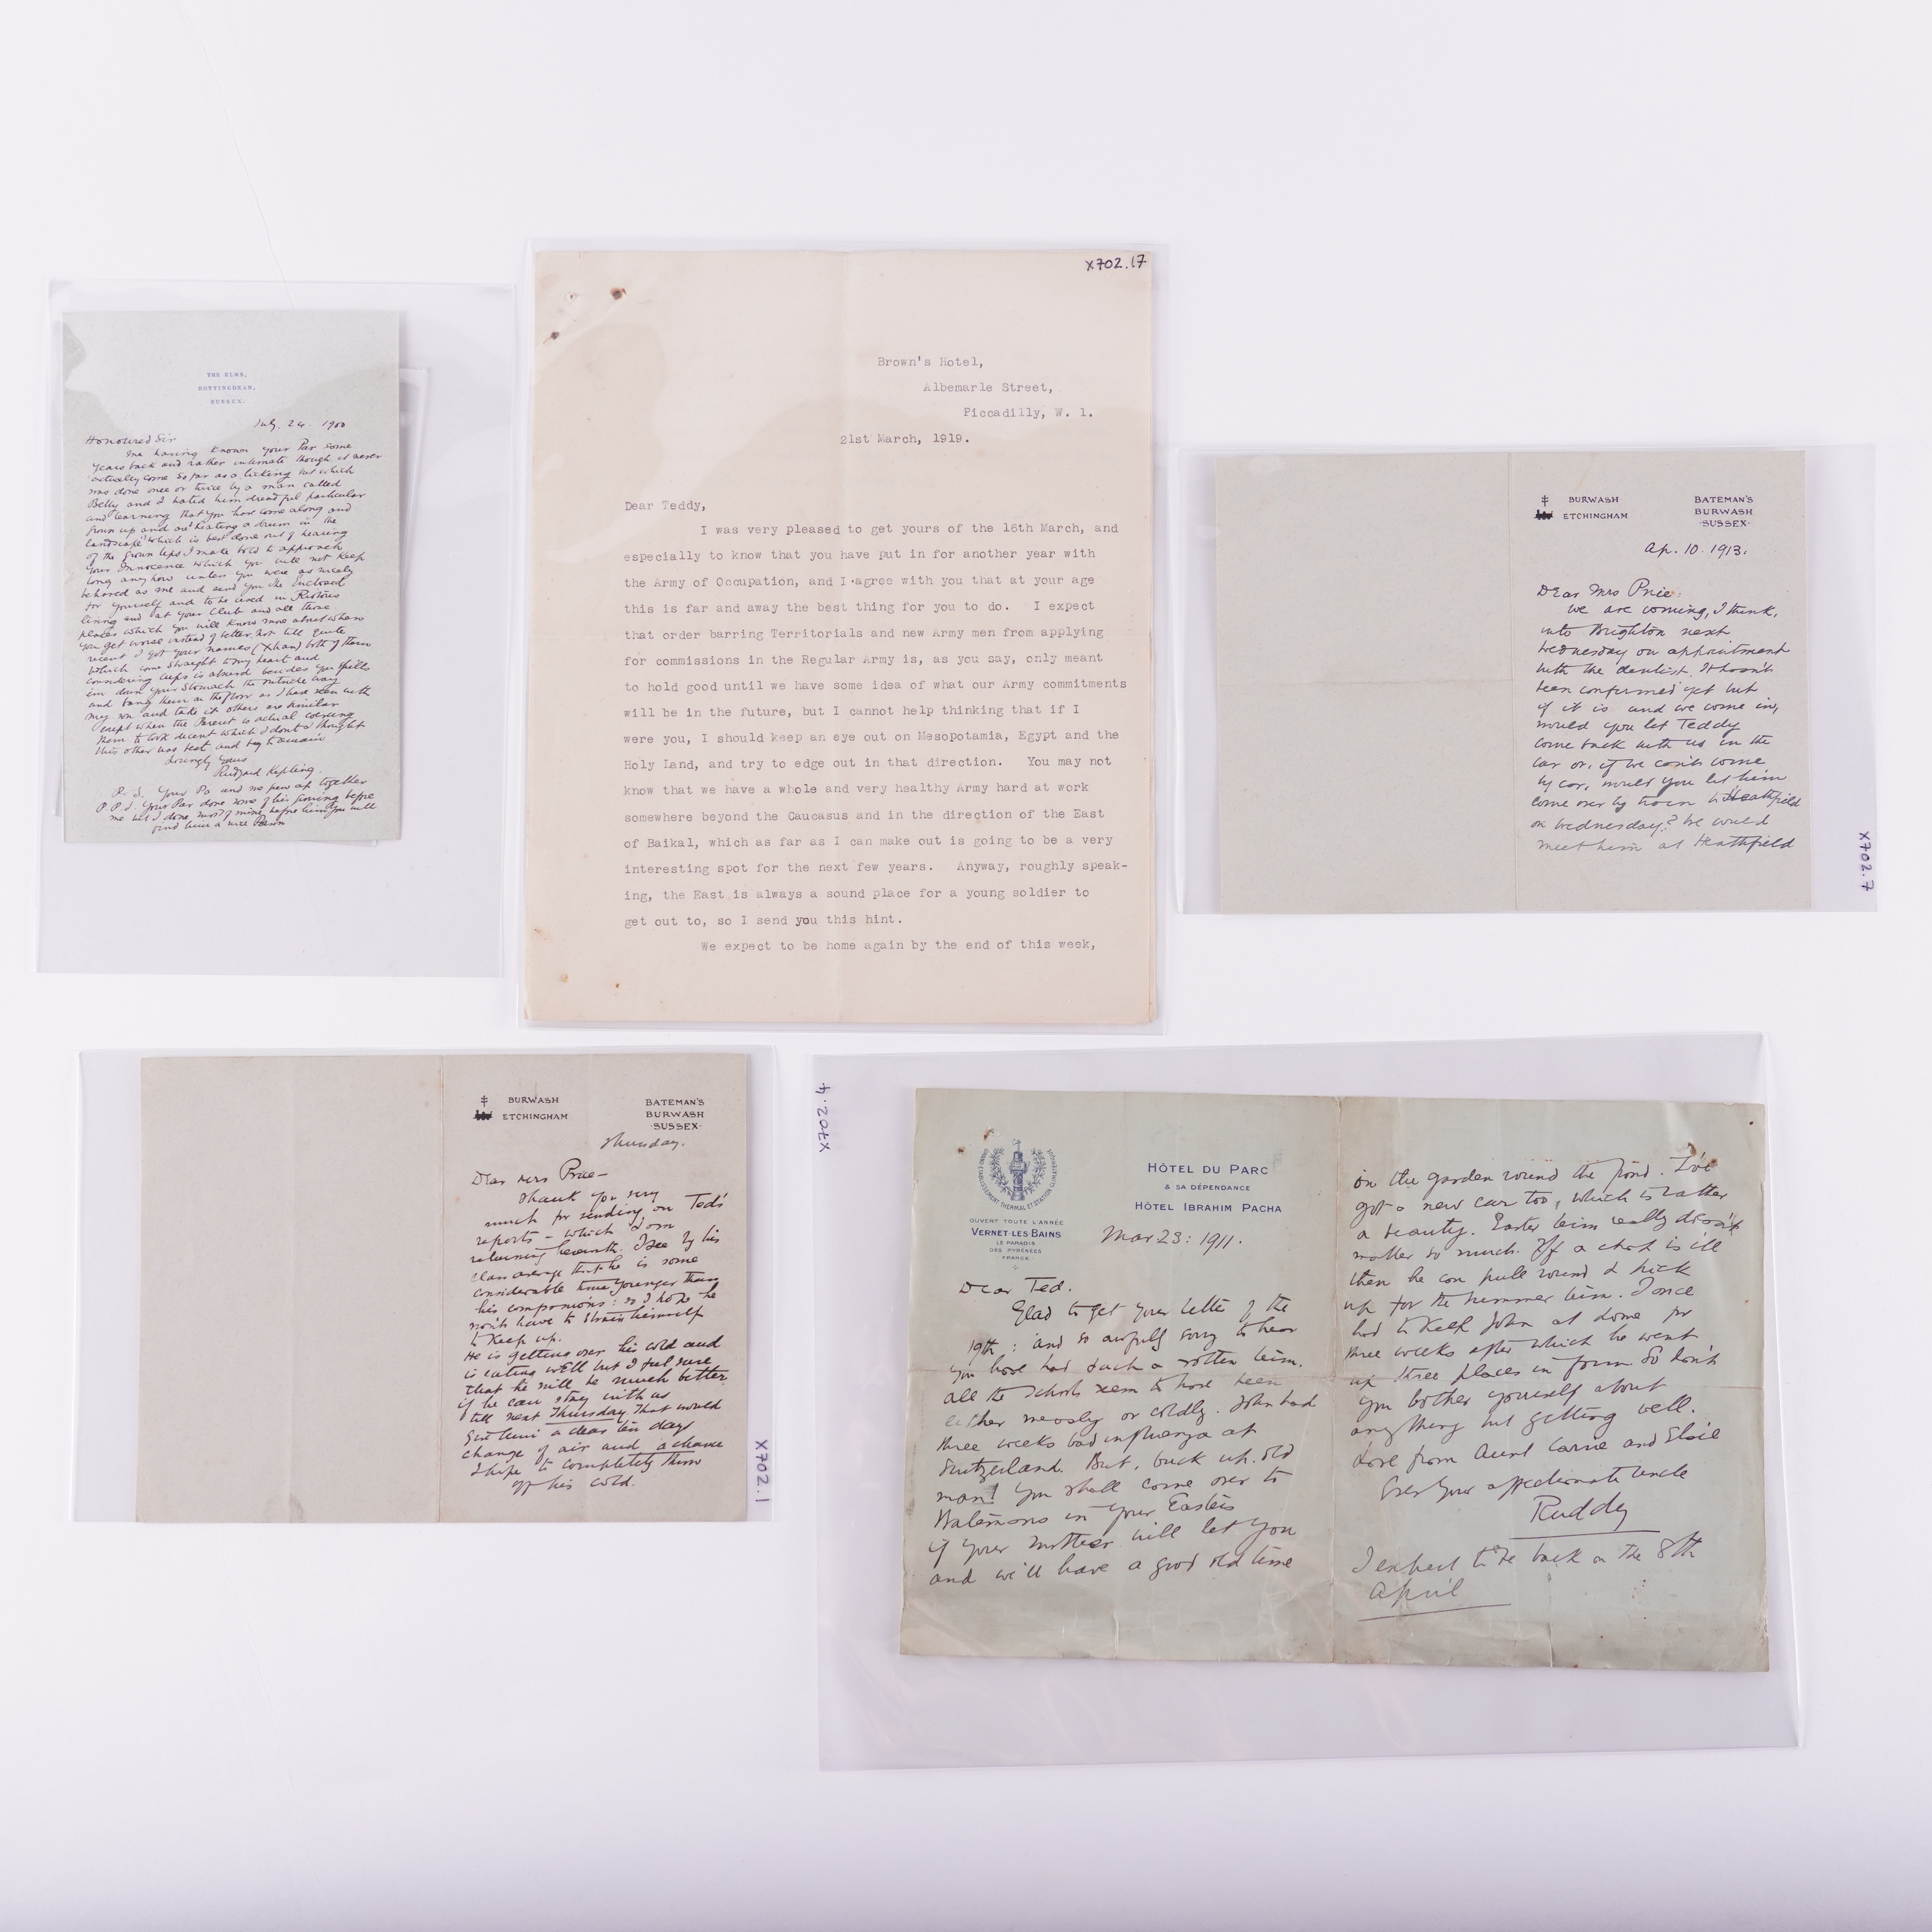 THE ELMS,
ROTTINGDEAN,
SUSSEX.
July. 24. 1900
Honoured Sir
Me having known your Par some
years back and rather intimate though it never
actually come so far as a licking but which
was done once or twice by a man called
Belly and I hated him dreadful particular
and learning that you have come along and
grown up and are beating a drum in the
landscape which is best done out of hearing
of the grown ups I make bold to approach
your Innocence which you will not keep
long anyhow unless you were as nicely
behaved as me and send you the enclosed
for yourself and to be used in Riotous
living and at your Club and all those
places which you will know more about when
you get worse instead of better. Not till quite
recent I got your names ( both of them
which come straight to my heart and
considering cups is absurd besides you spills
em down your stomach the outside way
and bang them on the floor as I have seen with
my son and take it others are similar
cept when the Parent is actual
them to look decent which I dont I thought
this other was best and beg to remain
lovingly yours
Rudyard Kipling.
P. S. Your Pa and me grew up together
P. P. S. Your Par done some of his before
me but I done most of mine before him you will
find him a nice Person
X702.17
Brown's Hotel,
Albemarle Street,
Piccadilly, W. 1.
21st March, 1919.
Dear Teddy,
I was very pleased to get yours of the 16th March, and
especially to know that you have put in for another year with
the Army of Occupation, and I agree with you that at your age
this is far and away the best thing for you to do. I expect
that order barring Territorials and new Army men from applying
for commissions in the Regular Army is, as you say, only meant
to hold good until we have some idea of what our Army commitments
will be in the future, but I cannot help thinking that if I
were you, I should keep an eye out on Mesopotamia, Egypt and the
Holy Land, and try to edge out in that direction. You may not
know that we have a whole and very healthy Army hard at work
somewhere beyond the Caucasus and in the direction of the East
of Baikal, which as far as I can make out is going to be a very
interesting spot for the next few years. Anyway, roughly speak-
ing, the East is always a sound place for a young soldier to
get out to, so I send you this hint.
We expect to be home again by the end of this week,
BURWASH
ETCHINGHAM
BATEMAN'S
BURWASH
·SUSSEX·
Ap. 10. 1913.
Dear Mrs Price:
We are coming, I think,
into Brighton next
Wednesday on appointment
with the dentist. It hasn't
been confirmed yet but
if it is and we come in,
would you let Teddy
come back with us in the
car or, if we can't come
by car, would you let him
come over by train to Heathfield
on Wednesday? We would
meet him at Heathfield
X702.7
BURWASH
ETCHINGHAM
BATEMAN'S
BURWASH
·SUSSEX·
Thursday.
Dear Mrs Price –
Thank you very
much for sending on Ted's
reports – which I am
returning herewith. I see by his
class average that he is some
considerable time younger than
his companions: so I hope he
won't have to strain himself
to keep up.
He is getting over his cold and
is eating well but I feel sure
that he will be much better
if he can stay with us
till next Thursday. That would
give him a clear ten days
change of air and a chance
I hope to completely throw
off his cold.
X702.1
X702.4
GRAND ETABLISSEMENT THERMAL ET STATION CLIMATERIQUE
OUVERT TOUTE L'ANNÉE
VERNET-LES-BAINS
LE PARADIS
DES PYRÉNÉES
FRANCE
HÔTEL DU PARC
& SA DÉPENDANCE
HÔTEL IBRAHIM PACHA
Mar 23: 1911.
Dear Ted.
Glad to get your letter of the
19th: and so awfully sorry to hear
you have had such a rotten term.
All the schools seem to have been
either measly or coldly. John had
three weeks bad influenza at
Switzerland. But, buck up. old
man! You shall come over to
Batemans in your Easters
if your mother will let you
and we'll have a good old time
in the garden round the pond. I've
got a new car too, which is rather
a beauty. Easter term really doesn't
matter so much. If a chap is ill
then he can pull round & pick
up for the summer term. I once
had to keep John at home for
three weeks after which he went
up three places in form. So don't
you bother yourself about
anything but getting well.
Love from Aunt Carrie and Elsie
Ever your affectionate Uncle
Ruddy
I expect to be back on the 8th
April